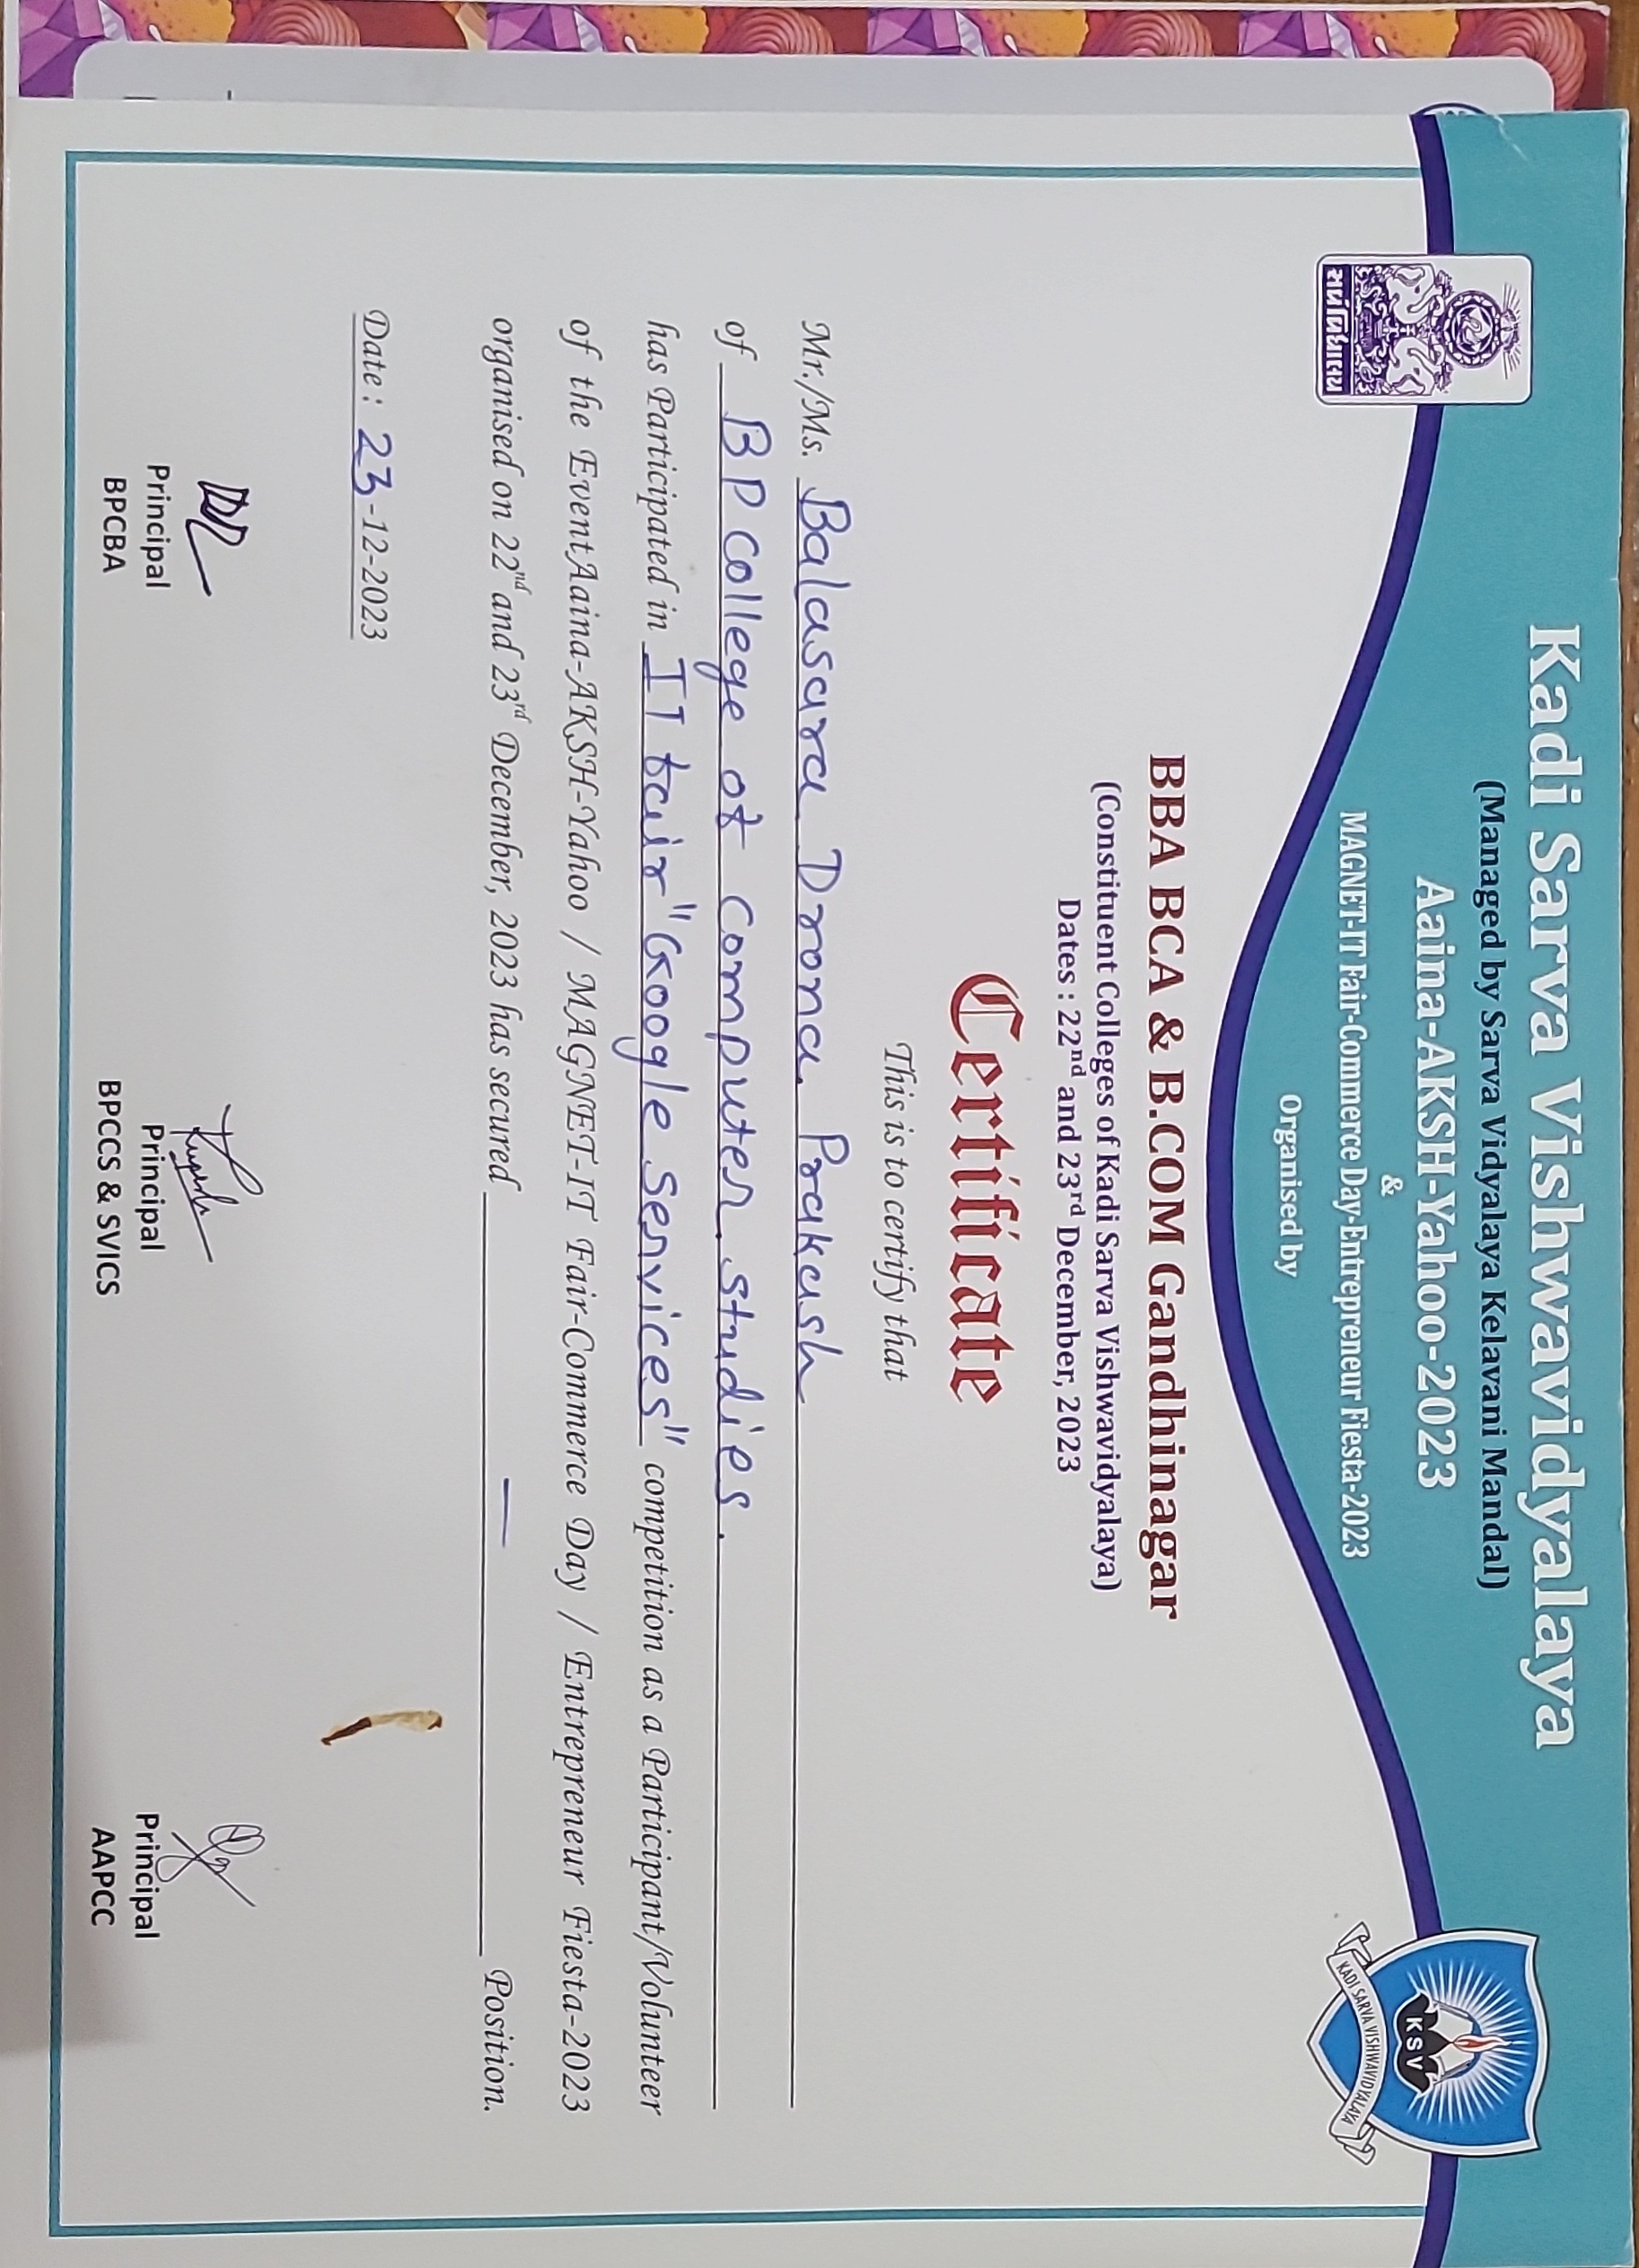 Kadi Sarva Vishwavidyalaya
(Managed by Sarva Vidyalaya Kelavani Mandal)
Aaina-AKSH-Yahoo-2023
&
MAGNET-IT Fair-Commerce Day-Entrepreneur Fiesta-2023
Organised by
સર્વ વિદ્યાલય
KSV
KADI SARVA VISHWAVIDYALAYA
BBA BCA & B.COM Gandhinagar
(Constituent Colleges of Kadi Sarva Vishwavidyalaya)
Dates : 22nd and 23rd December, 2023
Certificate
This is to certify that
Mr./Ms. Balasara Drona Prakash
of BP College of Computer studies.
has Participated in IT fair "Google Services" competition as a Participant/Volunteer
of the EventAaina-AKSH-Yahoo / MAGNET-IT Fair-Commerce Day / Entrepreneur Fiesta-2023
organised on 22nd and 23rd December, 2023 has secured — Position.
Date : 23-12-2023
Principal
BPCBA
Principal
BPCCS & SVICS
Principal
AAPCC